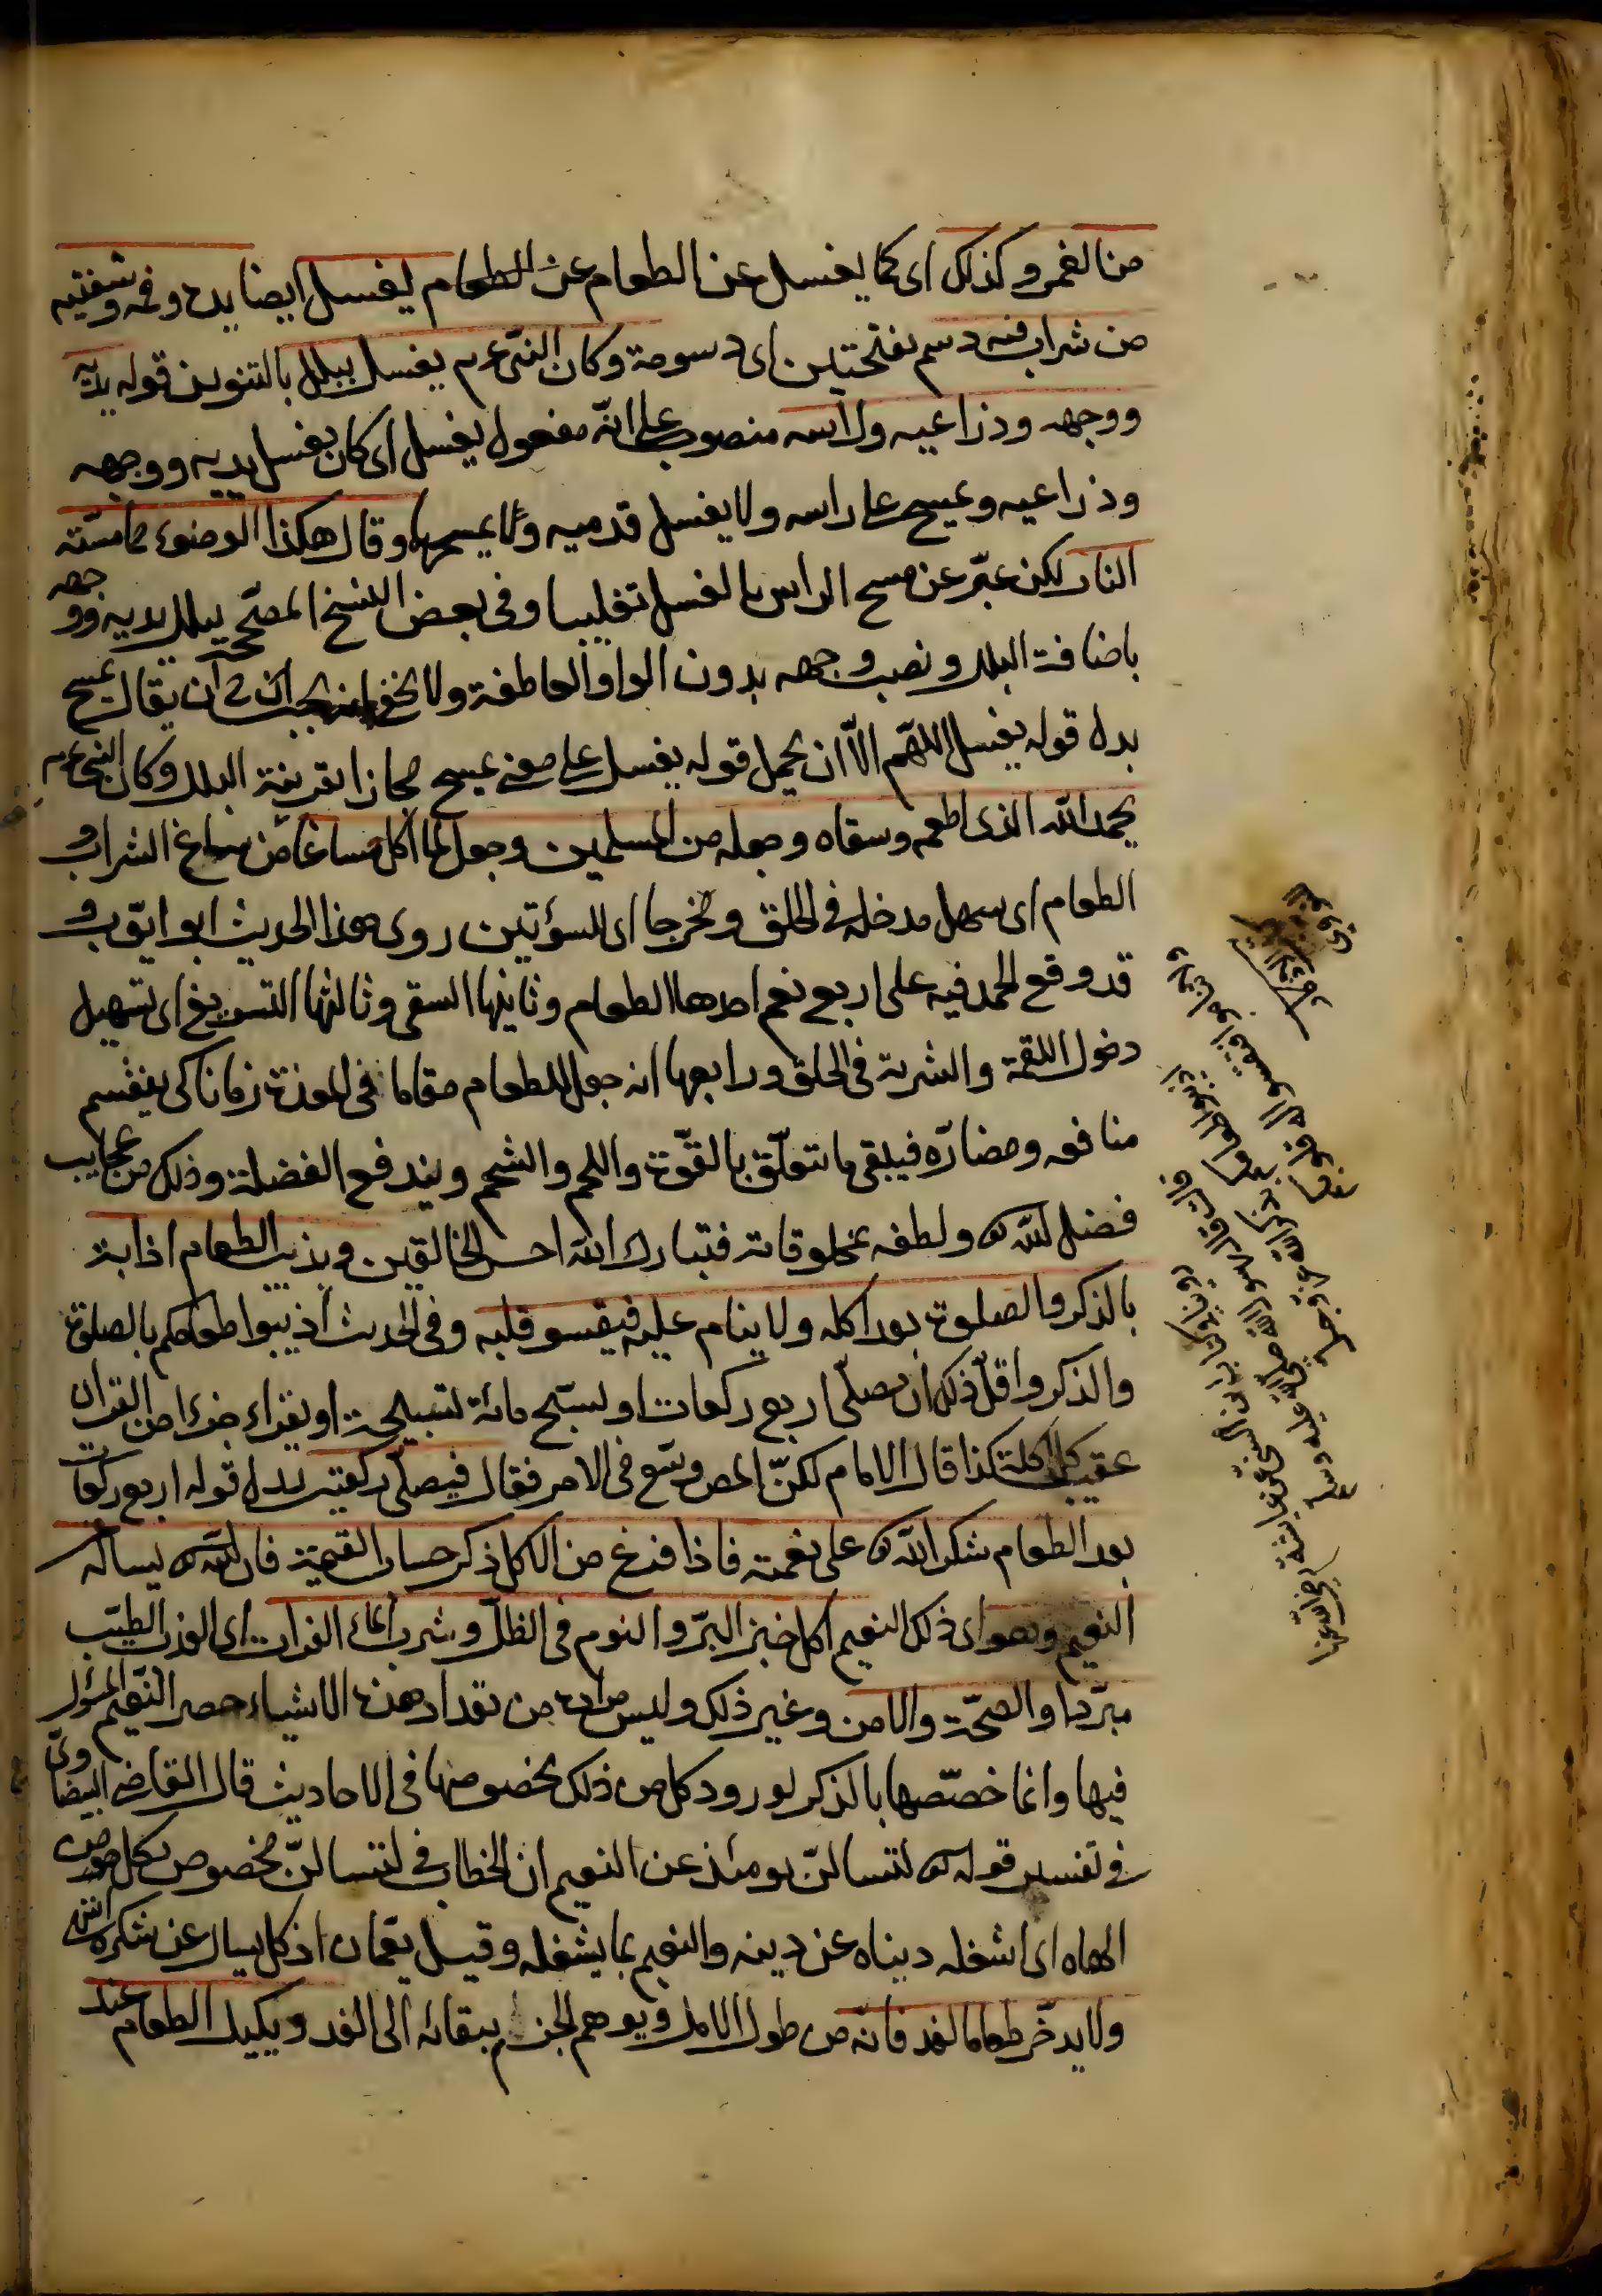 من الغمر وكذلك اى كما يغسل عن الطعام عن الطعام يغسل ايضا يده وفمه وشفتيه
من شراب فيه دسم بفتحتين اى دسومة وكان النبى عم يغسل ببلل بالتنوين قوله يديه
ووجهه وذراعيه وراسه منصوب على انه مفعول يغسل اى كان يغسل يديه ووجهه
وذراعيه ويمسح على راسه ولا يغسل قدميه ولا يمسحها وقال هكذا الوضوء مما مسّته
النار لكن عبّر عن مسح الراس بالغسل تغليبا وفى بعض النسخ المصحّحة ببلل يديه ووجهه
باضافة البلل ونصب وجهه بدون الواو العاطفة ولا يخفى ان يقال يمسح
بدل قوله يغسل اللهم الّا ان يحمل قوله يغسل على معنى يمسح مجازا بقرينة البلل وكان النبى عم
يحمد الله الذى اطعمه وسقاه وجعله من المسلمين وجعل لما اكل مساغا من ساغ الشراب و
الطعام اى سهل مدخله فى الحلق ومخرجا اى السوئتين روى هذا الحديث ابو ايّوب و
قد وقع الحمد فيه على اربع نعم احدها الطعام وثانيها السقى وثالثها التسويغ اى تسهيل
دخول اللقمة والشربة فى الحلق ورابعها انه جعل للطعام مقاما فى المعدة زمانا كى ينقسم
منافعه ومضارّه فيبقى ما تتعلّق بالقوّة واللحم والشحم ويندفع الفضلة وذلك من عجايب
فضل الله تع ولطفه بمخلوقاته فتبارك الله احسن الخالقين ويذيب الطعام اذابة
بالذكر والصلوة بعد اكله ولا ينام عليه فيقسو قلبه وفى الحديث اذيبوا طعامكم بالصلوة
والذكر واقلّ ذلك ان يصلّى اربع ركعات او يسبّح مائة تسبيحة او يقراء جزءا من القران
عقيب كل اكلة كذا قال الامام لكنّ المص وسّع فى الامر فقال فيصلّى ركعتين بدل قوله اربع ركعات
بعد الطعام شكر الله تع على نعمته فاذا فرغ من الاكل ذكر حساب القيمة فان الله تع يساله
النعيم وهو اى ذلك النعيم اكل خبز البرّ والنوم فى الظلّ وشرب الماء الفرات اى العذب الطيّب
مبرّدا والصحّة والامن وغير ذلك وليس مراده من تعداد هذه الاشياء حصر النعيم المسؤل
فيها وانما خصّصها بالذكر لورود كل من ذلك بخصوصها فى الاحاديث قال القاضى البيضاوىّ
فى تفسير قوله تع لتسالنّ يومئذ عن النعيم ان الخطاب فى لتسالنّ مخصوص بكل من
الهاه اى اشغله دنياه عن دينه والنعيم بما يشغله وقيل يعمّان اذ كل يسال عن شكره انتهى
ولا يدّخر طعاما لغد فانّه من طول الامل ويوهم الجزم ببقائه الى الغد ويكيل الطعام عند